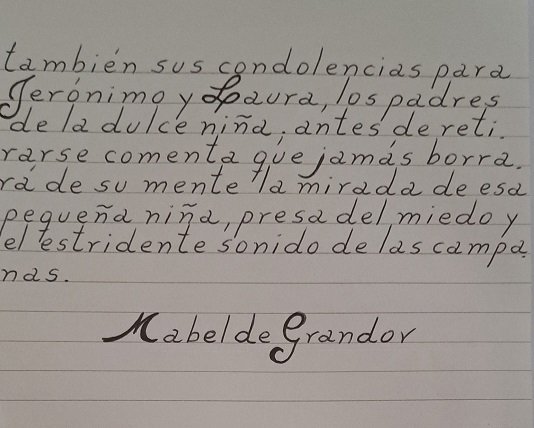 también sus condolencias para
Jerónimo y Laura, los padres
de la dulce niña, antes de reti.
rarse comenta que jamás borra.
rá de su mente la mirada de esa
pequeña niña, presa del miedo y
el estridente sonido de las campa.
nas.
Mabel de Grandov